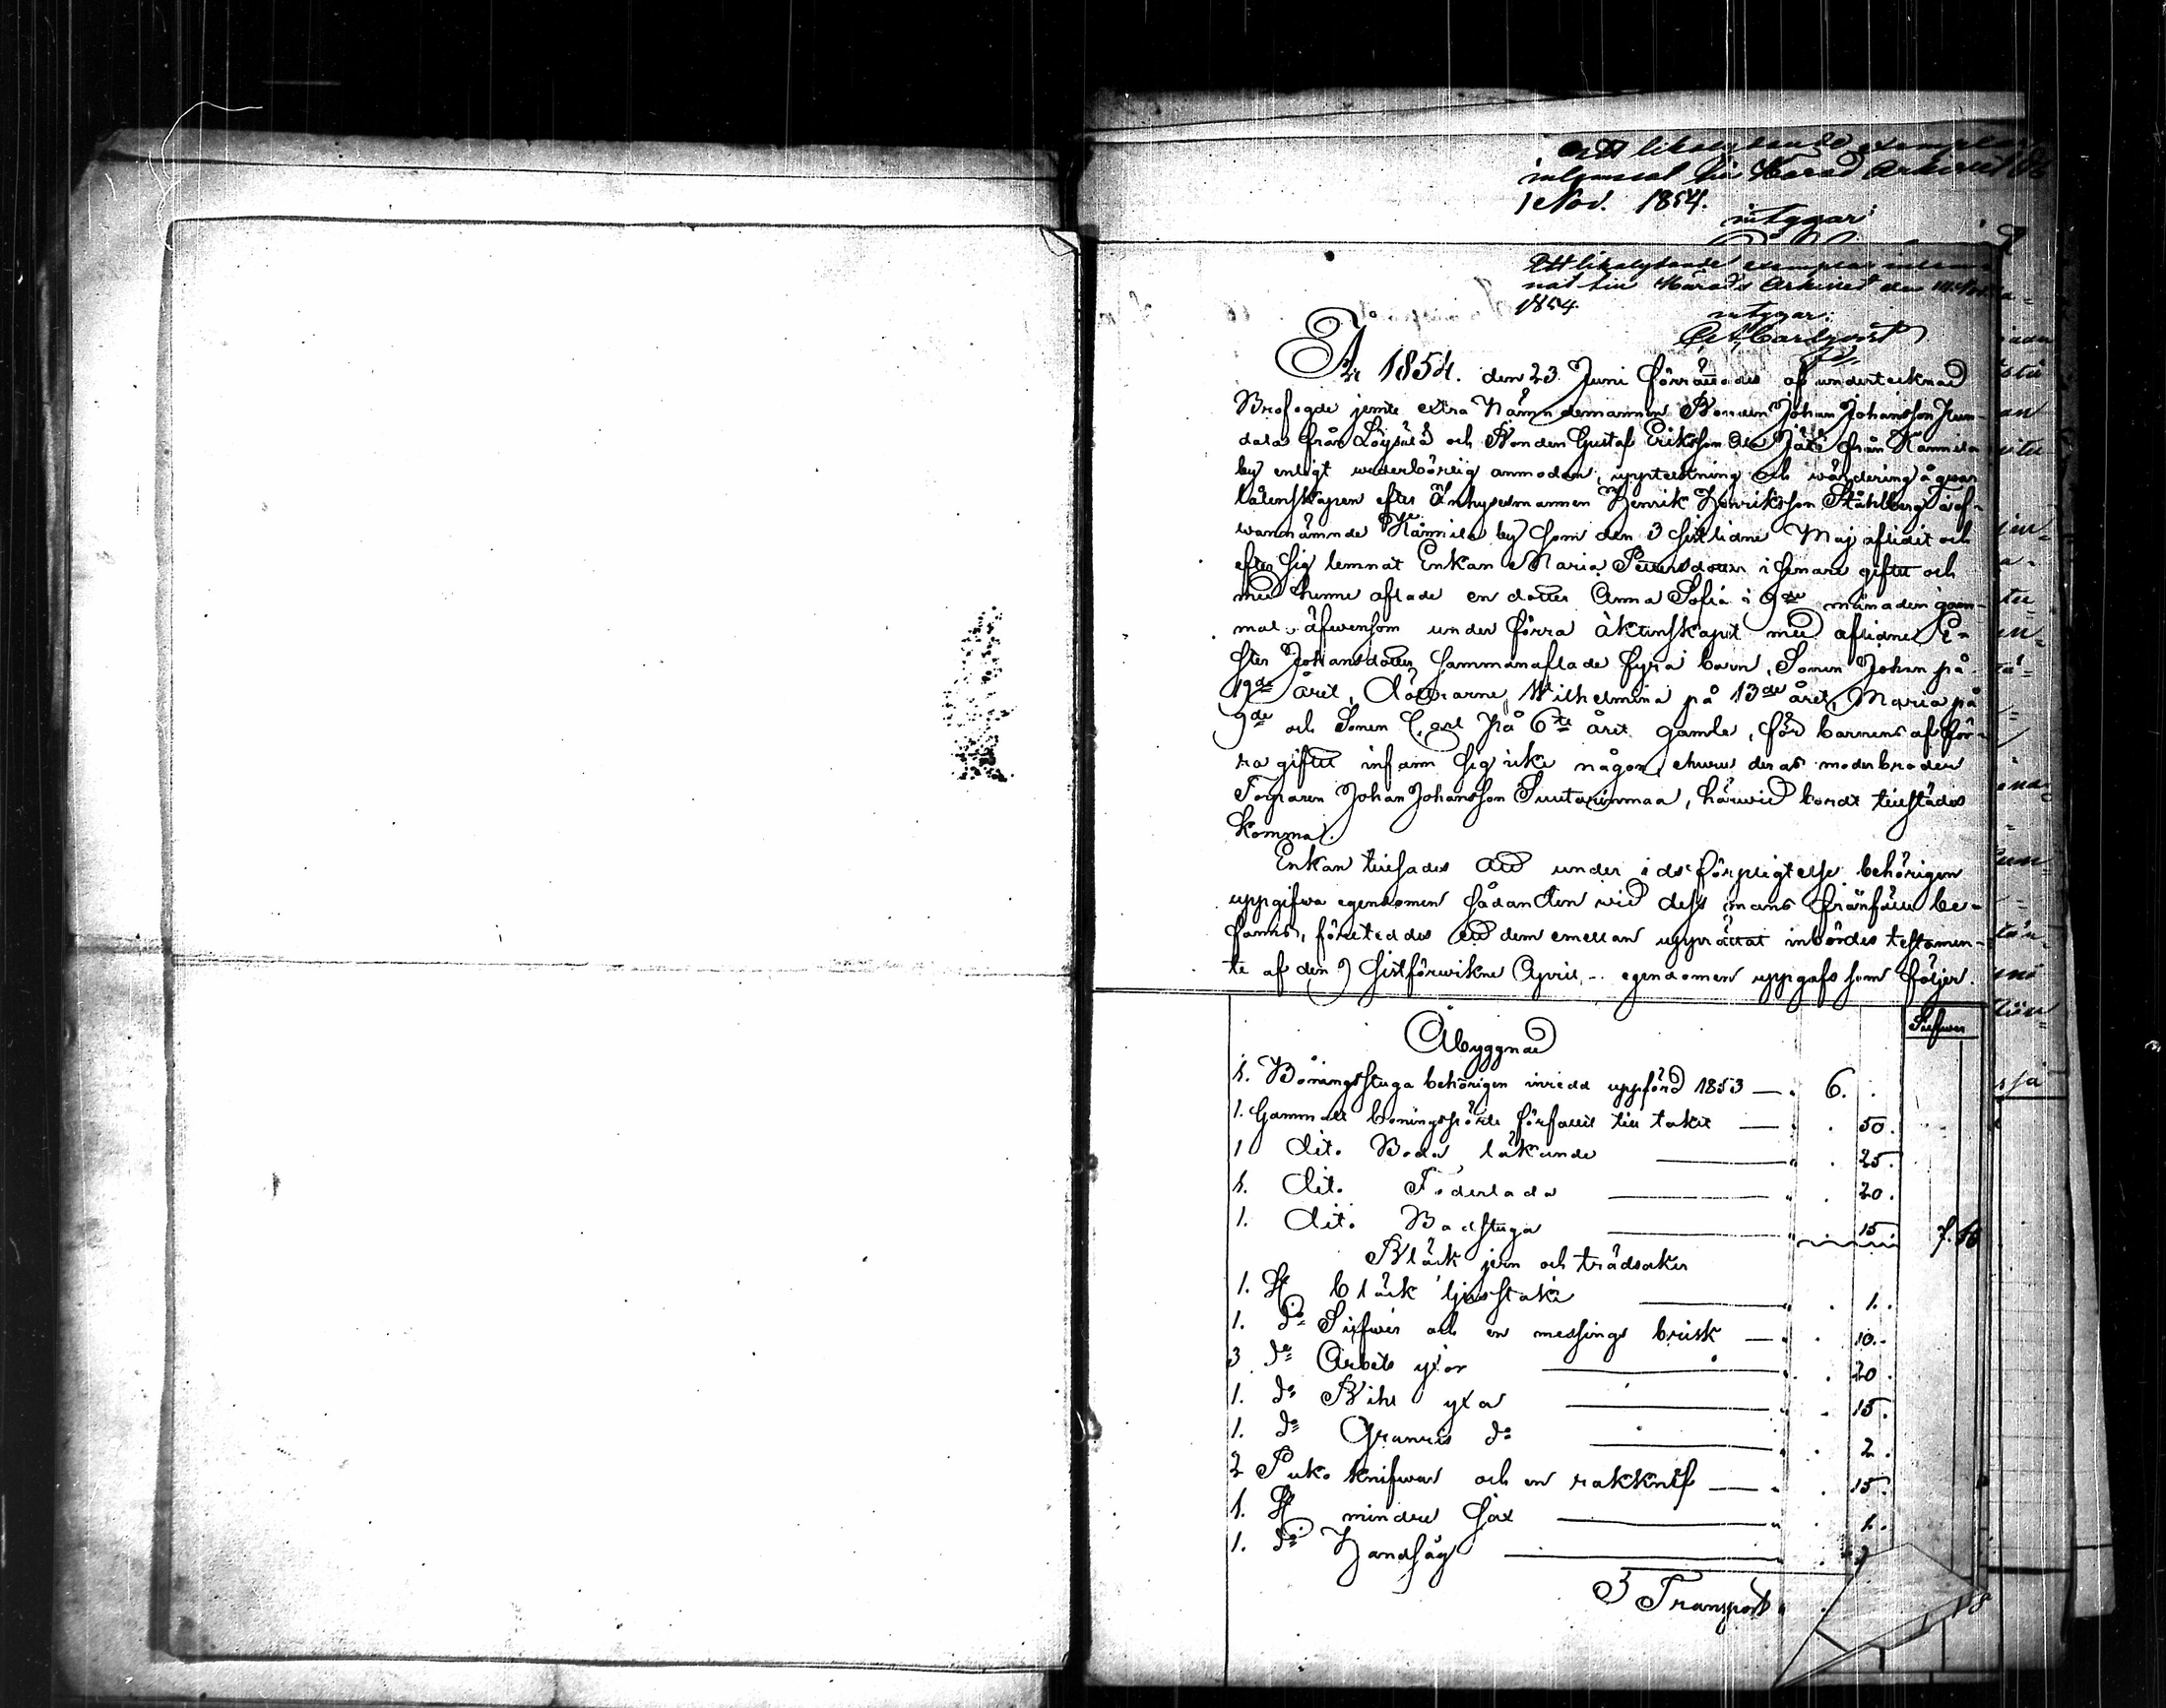 Ett likalydande exemplar
inlemnat hin Härad Arkivet
1 Nov. 1854.
intygar
Ett likalydande exemplar inlem-
nat hin Härads Arkivet den
1854.
intygar:
År 1854. den 23 Juni förrättades af undertecknad
Brofogde jemte extra Nämndemannen Bonden Johan Johansson
från Löysälä och Bonden Gustaf Eriksson från Kännilä
by enligt wederbörlig anmodan, uppteckning och wärdering å qwar
låtenskapen efter Inhysesmannen Henrik Henriksson Ståhlberg i of-
wannämnde Kännilä by som den 3 sistlidne Maj aflidit och
efter sig lemnat Enkan Maria Pettersdotter i senare giftet och
med henne aflade en dotter Anna Sofia i 9de månaden gam-
mal, äfwensom under förra äktenskapet med aflidne E-
ster Johansdotter sammanaflade fyra barn, Sonen Johan på
19de året, döttrarne Wilhelmina på 13de året, Maria på
9de och Sonen Carl på 6te året gamle, för barnens af för-
ra giftet infann sig icke någon, churu deras moderbroder
Torparen Johan Johansson Suutarinmaa, härwid bordt tillstädes
komma.
Enkan tillsades att under eds förpligtelse behörigen
uppgifwa egendomen sådan den wid dess mans frånfälle be-
fanns, företeddes ett dem emellan upprättat inbördes testamen-
te af den 9 sistförwikne April - egendomen uppgafs som följer.
Silfwer
Åbyggnad
1. Boningsstuga behörigen inredd uppförd 1853 — 6.
1. Gammalt boningspörte förfallit till taket — 50.
1 dit. Boda läkande — 25.
1. dit. Foderlada — 20.
1. dit. Badstuga — 15 7.
Bläck jern och trädsaker
1. St bläck ljusstake — 1.
1. do Silfwer och en messings brisk — 10.
3 do Arbets yxor — 20.
1. do Bihl yxa — 15.
1. do Granris do — 2.
2 Puko knifwar och en rakknif — 15.
1. St mindre sax — 1.
1. do Handsåg
Transport